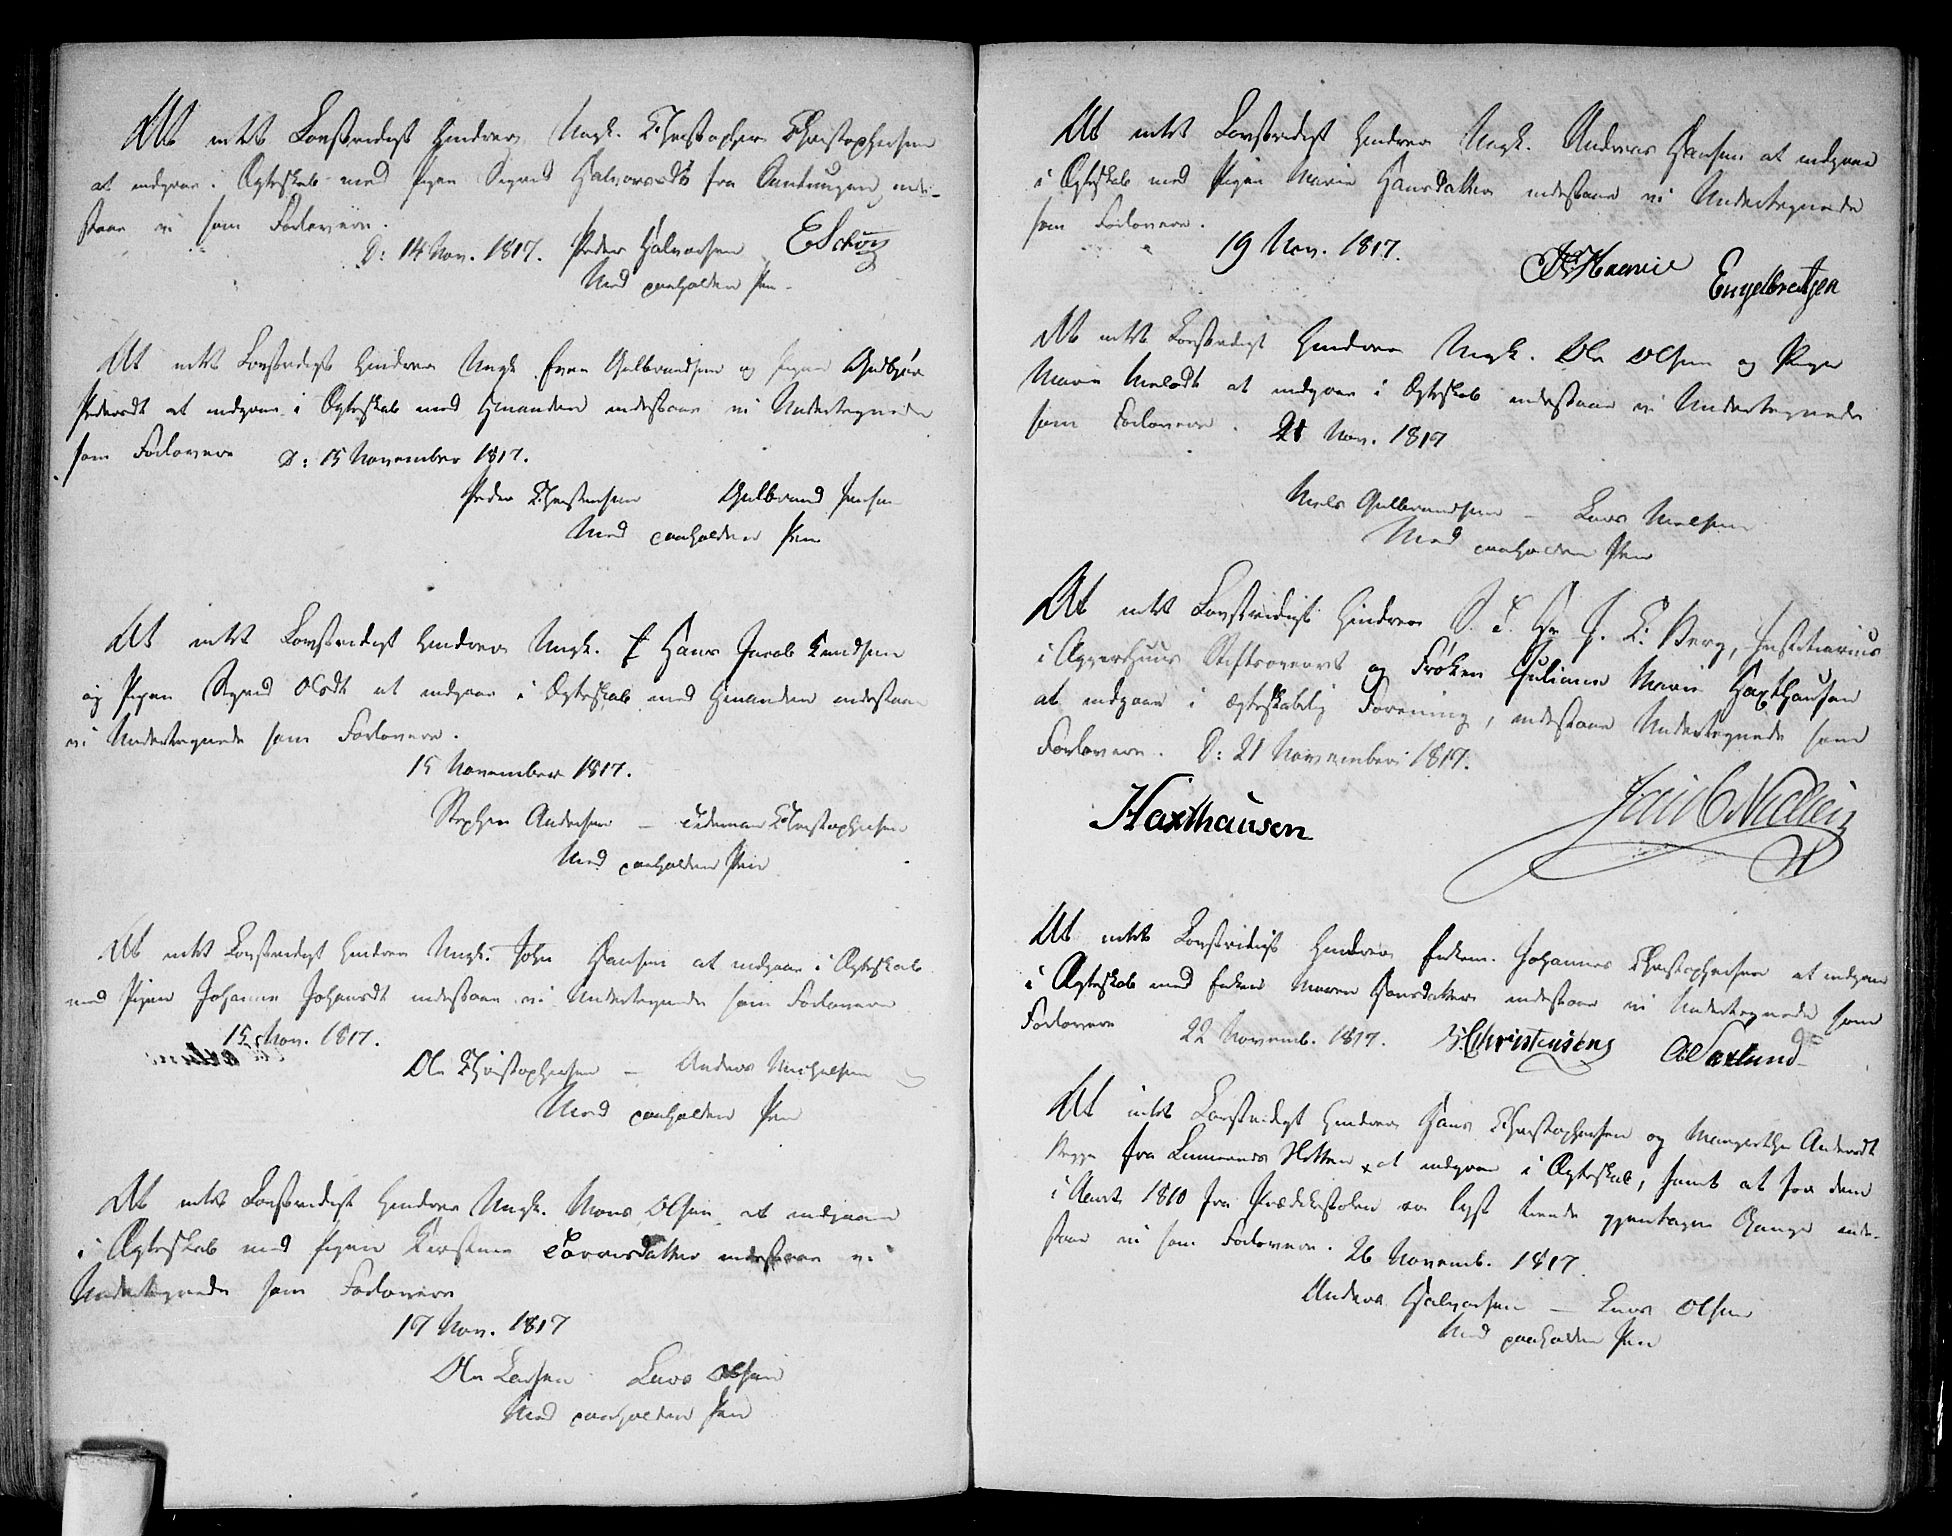 At intet Lovstridigt hindrer Ungk. Christopher Christophersen
at indgaae i Ægteskab med Pigen Sigrid Halvorsdt fra inde-
staae vi som Forlovere.
D: 14 Nov. 1817. Peder Halvorsen ESchütz
Med paaholden Pen.
At intet Lovstridigt hindrer Ungk. Even Gulbrandsen og Pigen Gudbjør
Pedersdt at indgaae i Ægteskab med hinanden indestaae vi Undertegnede
som Forlovere D: 15 November 1817.
Peder Christensen Gulbrand Jensen
Med paaholden Pen
At intet Lovstridigt hindrer Ungk. Hans Jacob Knudsen
og Pigen Sigrid Olsdt at indgaae i Ægteskab med hinanden indestaae
vi Undertegnede som Forlovere.
15 November 1817.
Stephen Andersen — Christophersen
Med paaholden Pen
At intet Lovstridigt hindrer Ungk. John Hansen at indgaae i Ægteskab
med Pigen Johanne Johansdt indestaae vi Undertegnede som Forlovere
15 Nov. 1817.
Ole Christophersen — Anders Michelsen
Med paaholden Pen
At intet Lovstridigt hindrer Ungk. Mons Olsen at indgaae
i Ægteskab med Pigen Kirstine Torersdatter indestaae vi
Undertegnede som Forlovere
17 Nov. 1817
Ole Larsen Lars Olsen
Med paaholden Pen
At intet Lovstridigt hindrer Ungk. Andreas Hansen at indgaae
i Ægteskab med Pigen Marie Hansdatter indestaae vi Undertegnede
som Forlovere.
19 Nov. 1817.
Engelbretsen
At intet Lovstridigt hindrer Ungk. Ole Olsen og Pige
Maren Nielsdt at indgaae i Ægteskab indestaae vi Undertegnede
som Forlovere. 21 Nov. 1817
Niels Gulbrandsen — Lars Nielsen
Med paaholden Pen
At intet Lovstridigt hindrer S. T. Hr J. C. Berg, Justitiarius
i Aggerhuus Stiftsoverret og Frøken Juliane Marie Haxthausen
at indgaae i ægteskabelig Forening, indestaae Undertegnede som
Forlovere. D: 21 November 1817.
Haxthausen Jacob Nielsen
At intet Lovstridigt hindrer Enkem. Johannes Christophersen at indgaae
i Ægteskab med Enken Maren Hansdatter indestaae vi Undertegnede som
Forlovere 22 Novemb. 1817. Christensens Saxlund
At intet Lovstridigt hindrer Hans Christophersen og Margrethe Andersdt
Begge fra at indgaae i Ægteskab, samt at for dem
i Aaret 1810 fra Prædikestolen er lyst trende gjentagne Gange inde-
staae vi som Forlovere. 26 Novemb. 1817.
Anders Halvorsen — Lars Olsen
Med paaholden Pen